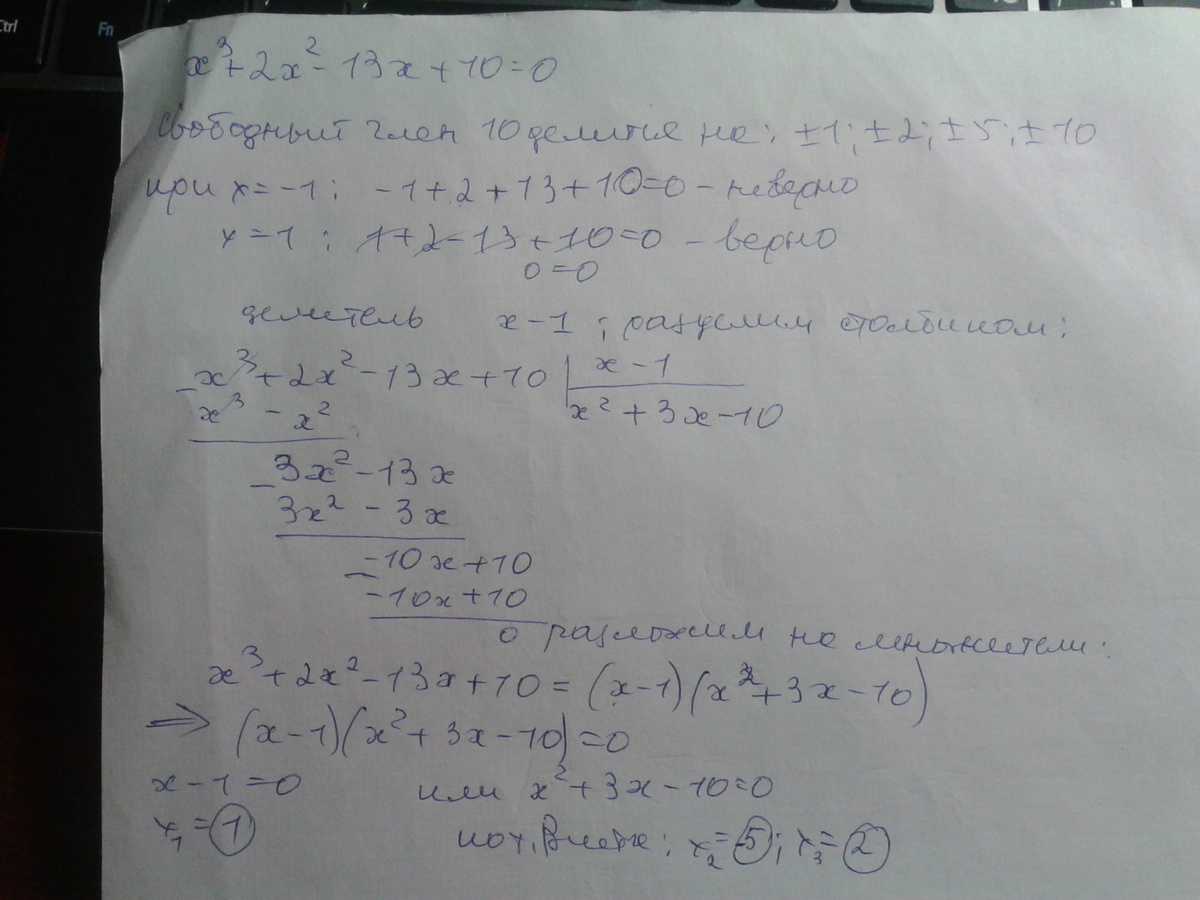 Ctrl
Fn
x³+2x²-13x+10=0
свободный член 10 делится на: ±1; ±2; ±5; ±10
при x=-1: -1+2+13+10=0 - неверно
x=1: 1+2-13+10=0 - верно
0=0
делитель x-1; разделим столбиком:
-x³+2x²-13x+10 | x-1
x³-x² x²+3x-10
-3x²-13x
3x²-3x
-10x+10
-10x+10
0 разложим на множители:
x³+2x²-13x+10=(x-1)(x²+3x-10)
⇒ (x-1)(x²+3x-10)=0
x-1=0 или x²+3x-10=0
x₁=1 по т. Виета: x₂=-5; x₃=2